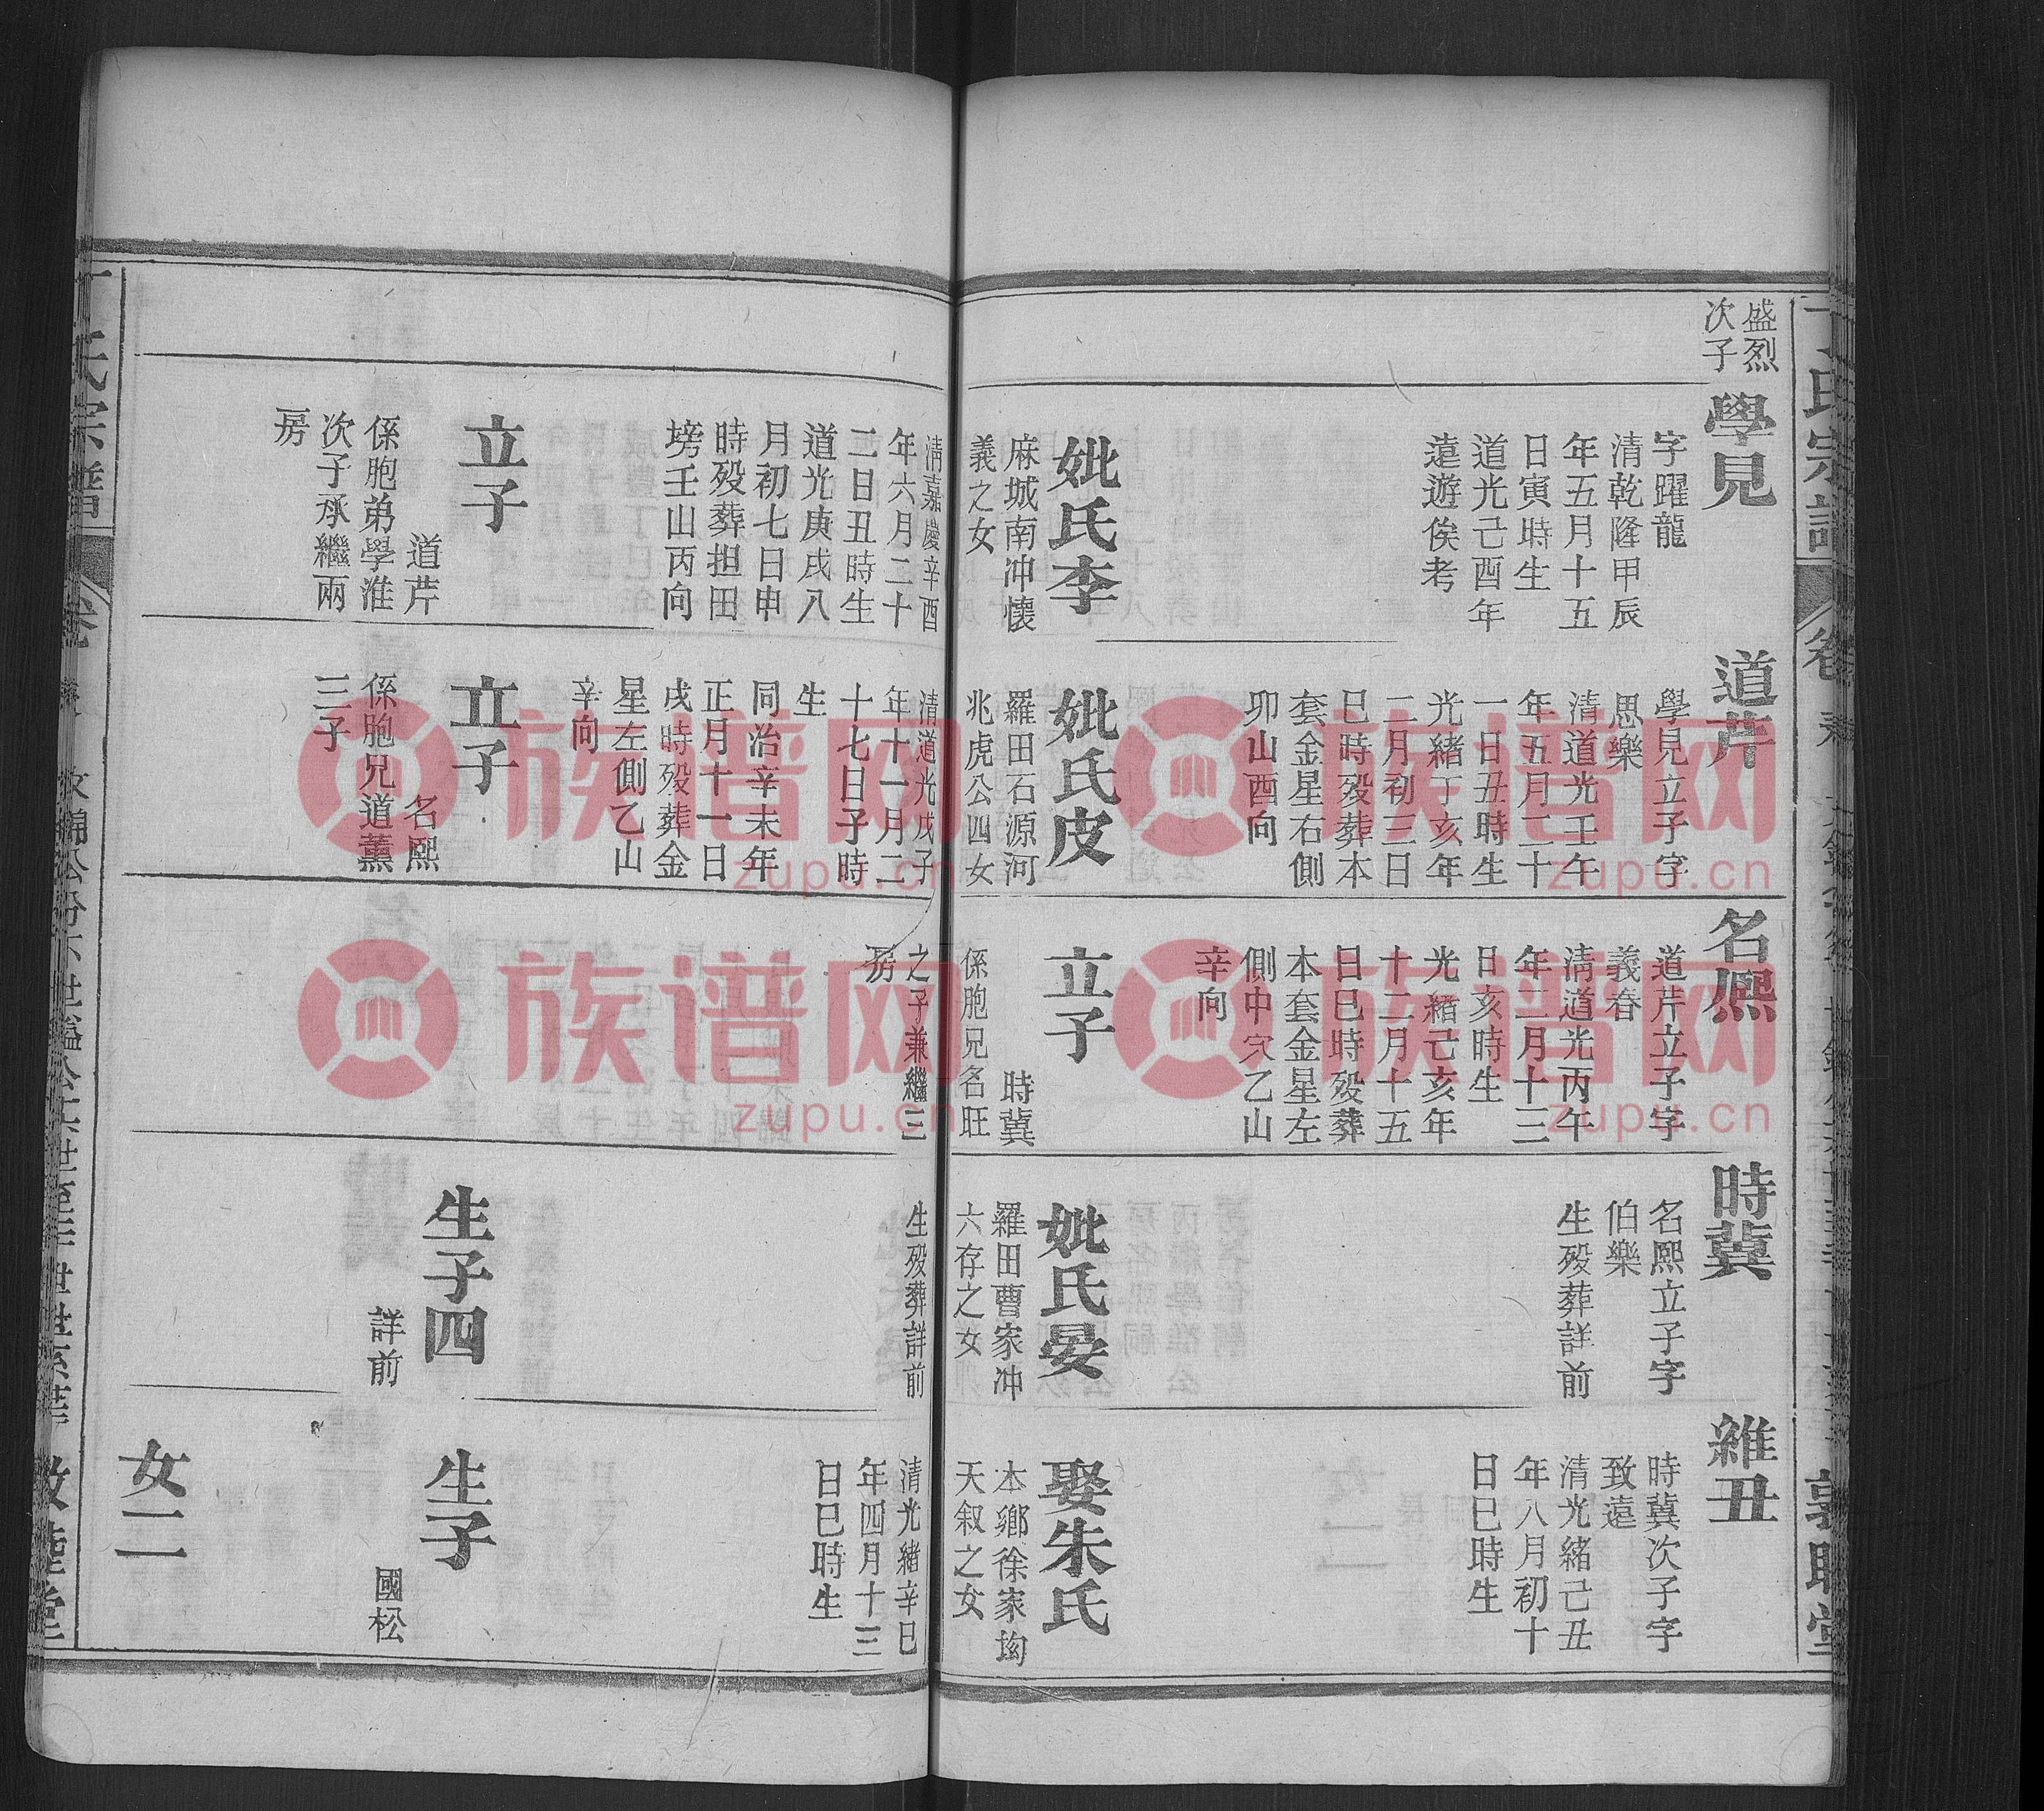 盛烈
次子
學見
字躍龍
清乾隆甲辰
年五月十五
日寅時生
道光己酉年
遠遊俟考
妣氏李
麻城南冲懷
義之女
清嘉慶辛酉
年六月二十
二日丑時生
道光庚戌八
月初七日申
時殁葬担田
塝壬山丙向
立子
道芹
係胞弟學淮
次子承繼兩
房
道芹
學見立子字
思樂
清道光壬午
年五月二十
一日丑時生
光緒丁亥年
二月初三日
巳時殁葬本
套金星右側
卯山酉向
妣氏皮
羅田石源河
兆虎公四女
清道光戊子
年十一月二
十七日子時
生
同治辛未年
正月十一日
戌時殁葬金
星左側乙山
辛向
立子
名熙
係胞兄道薰
三子
名熙
道芹立子字
義春
清道光丙午
年二月十三
日亥時生
光緒己亥年
十二月十五
日巳時殁葬
本套金星左
側中穴乙山
辛向
立子
時蓂
係胞兄名旺
之子兼繼三
房
時蓂
名熙立子字
伯樂
生殁葬詳前
妣氏晏
羅田曹家冲
六存之女
生殁葬詳前
生子四
詳前
維丑
時蓂次子字
致遠
清光緒己丑
年八月初十
日巳時生
娶朱氏
本鄉徐家坳
天叙之女
清光緒辛巳
年四月十三
日巳時生
生子
國松
女二
族谱网
zupu.cn
族谱网
zupu.cn
族谱网
zupu.cn
族谱网
zupu.cn